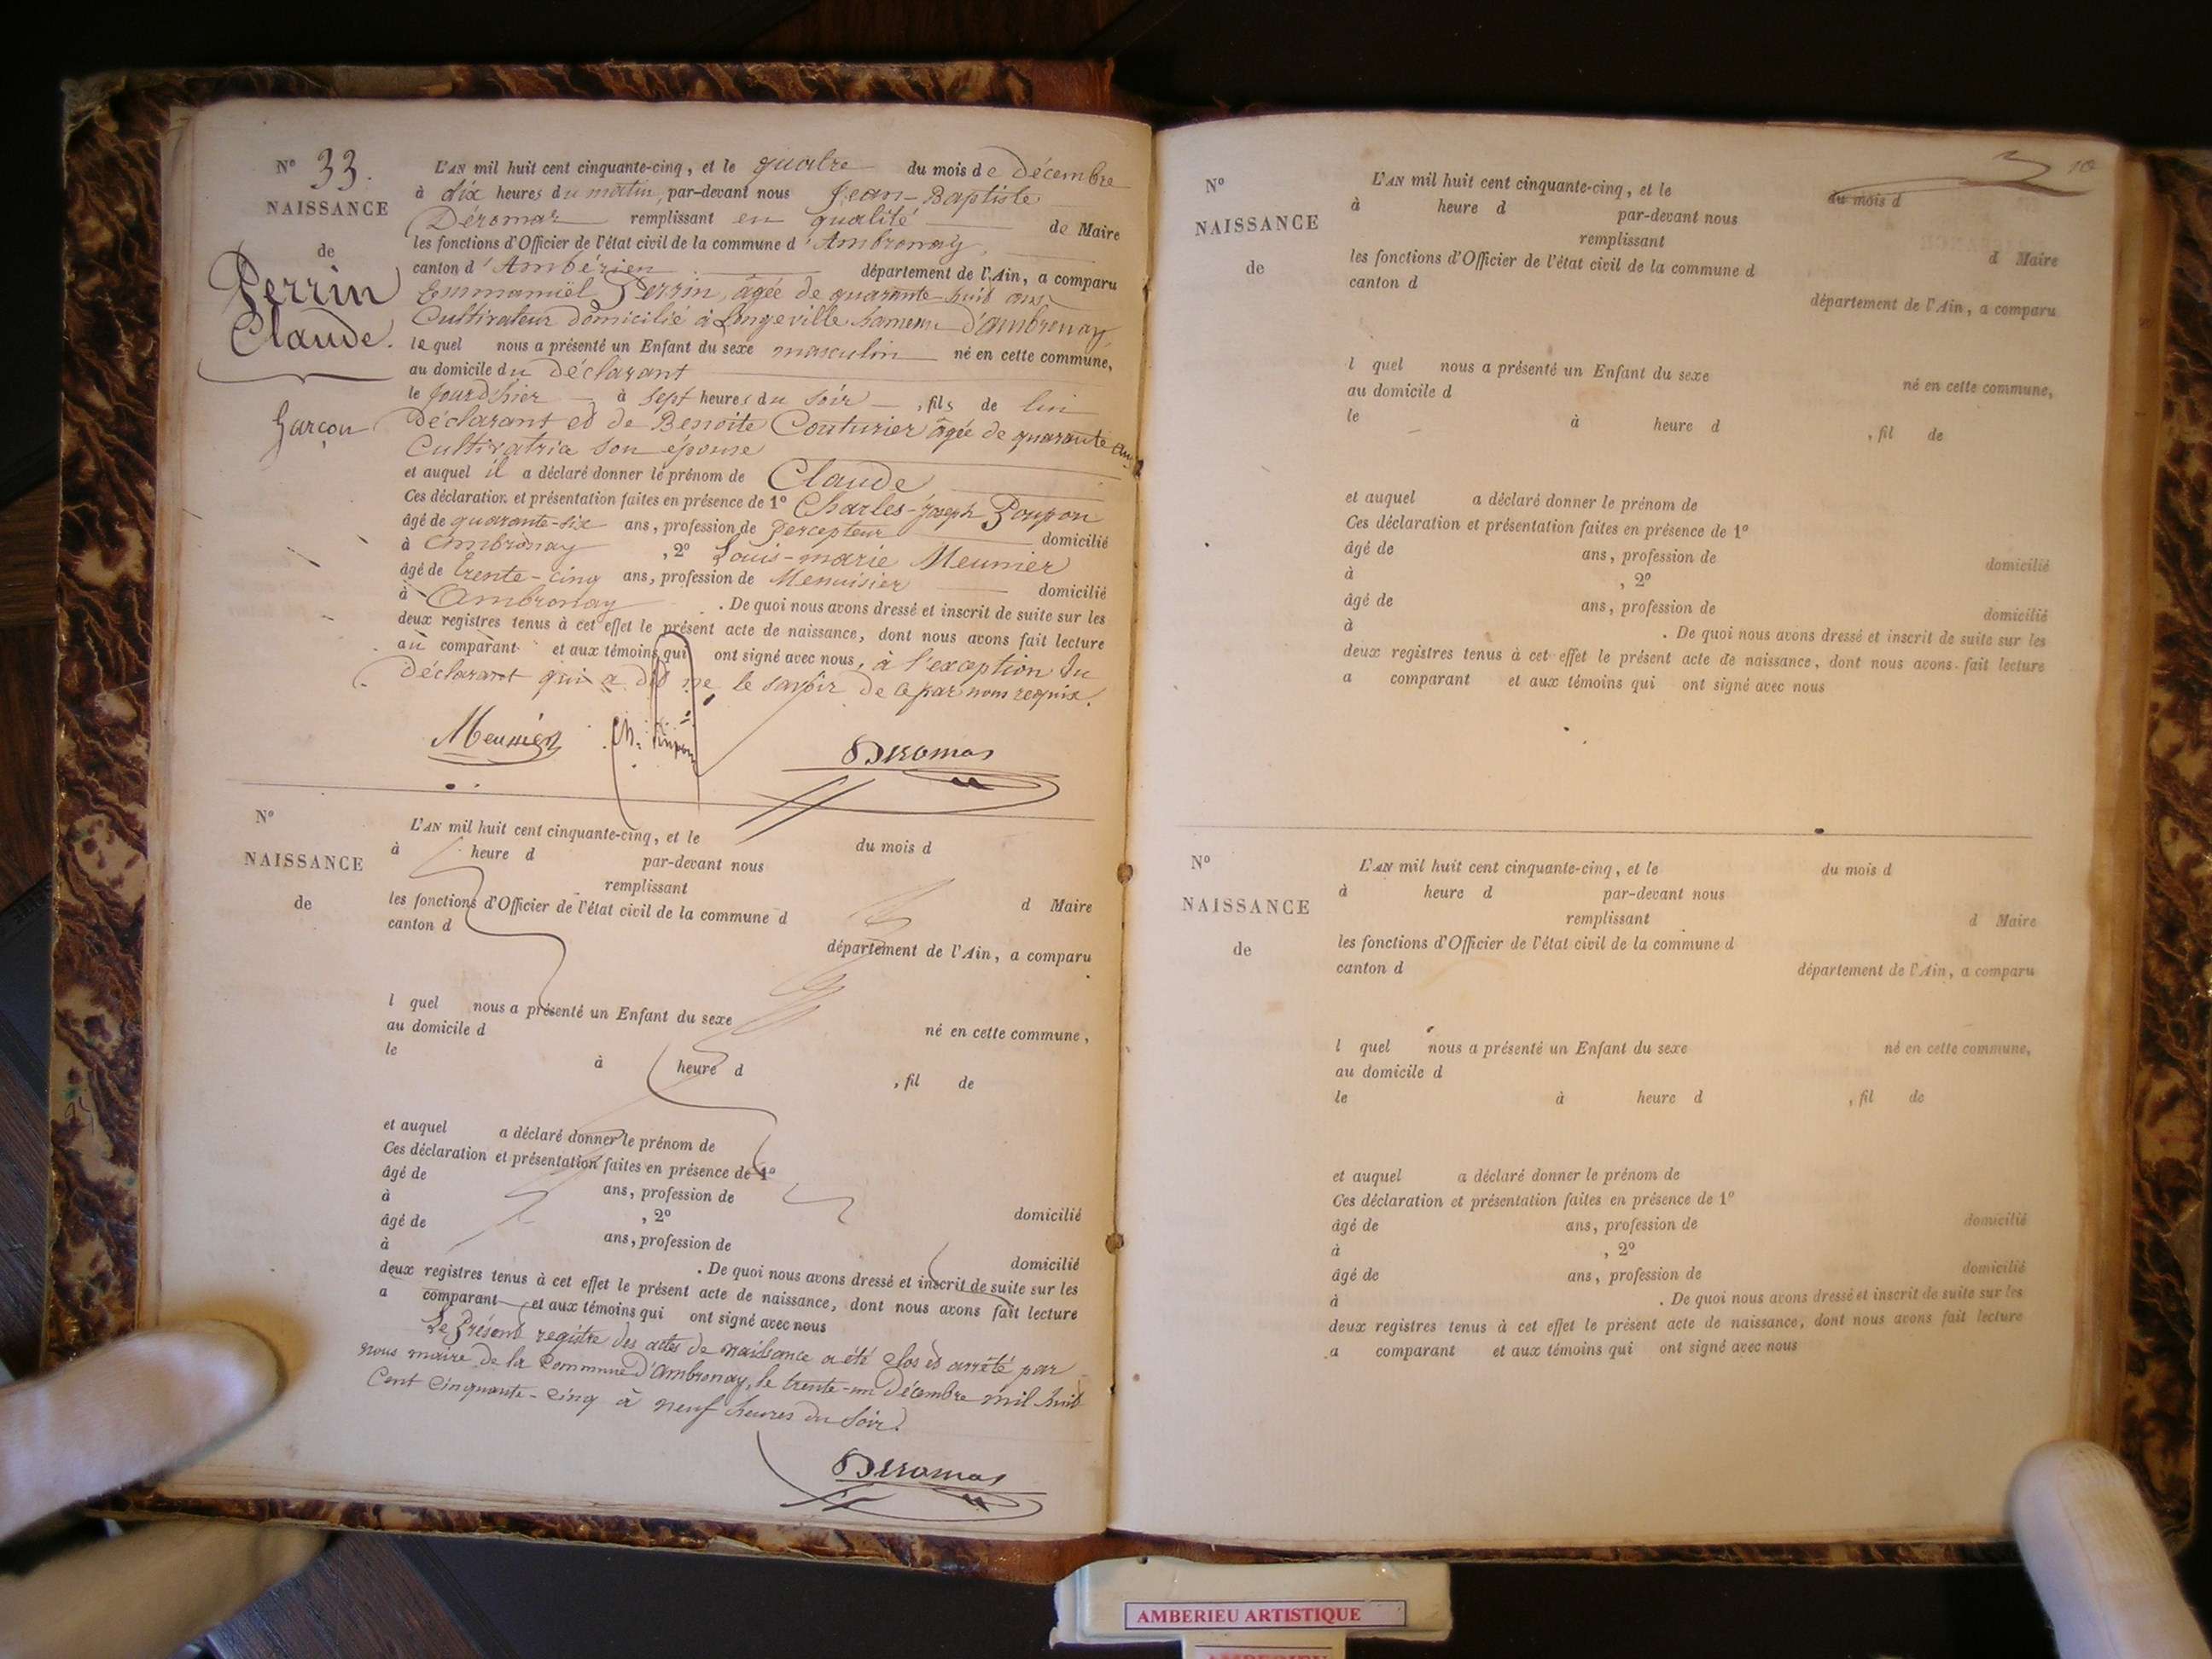 N° 33.
NAISSANCE
de
Perrin
Claude.
Garçon
L'AN mil huit cent cinquante-cinq, et le quatre du mois de Décembre
à dix heures du matin, par-devant nous Jean-Baptiste
Déromas remplissant en qualité de Maire
les fonctions d'Officier de l'état civil de la commune d'Ambronay,
canton d'Ambérieu département de l'Ain, a comparu
Emmanuël Perrin, âgée de quarante-huit ans,
Cultivateur domicilié à Longeville hameau d'ambronay
le quel nous a présenté un Enfant du sexe masculin né en cette commune,
au domicile du Déclarant
le jourd'hier à sept heures du soir, fils de lui
Déclarant et de Benoite Couturier âgée de quarante ans
Cultivatrice son épouse
et auquel il a déclaré donner le prénom de Claude
Ces déclaration et présentation faites en présence de 1° Charles-Joseph Poupon
âgé de quarante-six ans, profession de Percepteur domicilié
à Ambronay, 2° Louis-marie Meunier
âgé de trente-cinq ans, profession de Menuisier domicilié
à Ambronay. De quoi nous avons dressé et inscrit de suite sur les
deux registres tenus à cet effet le présent acte de naissance, dont nous avons fait lecture
au comparant et aux témoins qui ont signé avec nous, à l'exception du
Déclarant qui a dit ne le savoir de ce par nous requis.
Meunier Ch. Poupon Deromas
N°
NAISSANCE
de
L'AN mil huit cent cinquante-cinq, et le du mois d
à heure d par-devant nous
remplissant d Maire
les fonctions d'Officier de l'état civil de la commune d
canton d département de l'Ain, a comparu
l quel nous a présenté un Enfant du sexe né en cette commune,
au domicile d
le à heure d , fil de
et auquel a déclaré donner le prénom de
Ces déclaration et présentation faites en présence de 1°
âgé de ans, profession de domicilié
à , 2°
âgé de ans, profession de domicilié
à . De quoi nous avons dressé et inscrit de suite sur les
deux registres tenus à cet effet le présent acte de naissance, dont nous avons fait lecture
a comparant et aux témoins qui ont signé avec nous
Le Présent registre des actes de naissance a été clos et arrêté par
nous maire de la Commune d'Ambronay, le trente-un Décembre mil huit
Cent Cinquante-Cinq à neuf heures du Soir.
Deromas
10
N°
NAISSANCE
de
L'AN mil huit cent cinquante-cinq, et le du mois d
à heure d par-devant nous
remplissant d Maire
les fonctions d'Officier de l'état civil de la commune d
canton d département de l'Ain, a comparu
l quel nous a présenté un Enfant du sexe né en cette commune,
au domicile d
le à heure d , fil de
et auquel a déclaré donner le prénom de
Ces déclaration et présentation faites en présence de 1°
âgé de ans, profession de domicilié
à , 2°
âgé de ans, profession de domicilié
à . De quoi nous avons dressé et inscrit de suite sur les
deux registres tenus à cet effet le présent acte de naissance, dont nous avons fait lecture
a comparant et aux témoins qui ont signé avec nous
N°
NAISSANCE
de
L'AN mil huit cent cinquante-cinq, et le du mois d
à heure d par-devant nous
remplissant d Maire
les fonctions d'Officier de l'état civil de la commune d
canton d département de l'Ain, a comparu
l quel nous a présenté un Enfant du sexe né en cette commune,
au domicile d
le à heure d , fil de
et auquel a déclaré donner le prénom de
Ces déclaration et présentation faites en présence de 1°
âgé de ans, profession de domicilié
à , 2°
âgé de ans, profession de domicilié
à . De quoi nous avons dressé et inscrit de suite sur les
deux registres tenus à cet effet le présent acte de naissance, dont nous avons fait lecture
a comparant et aux témoins qui ont signé avec nous
AMBERIEU ARTISTIQUE
AMBERIEU